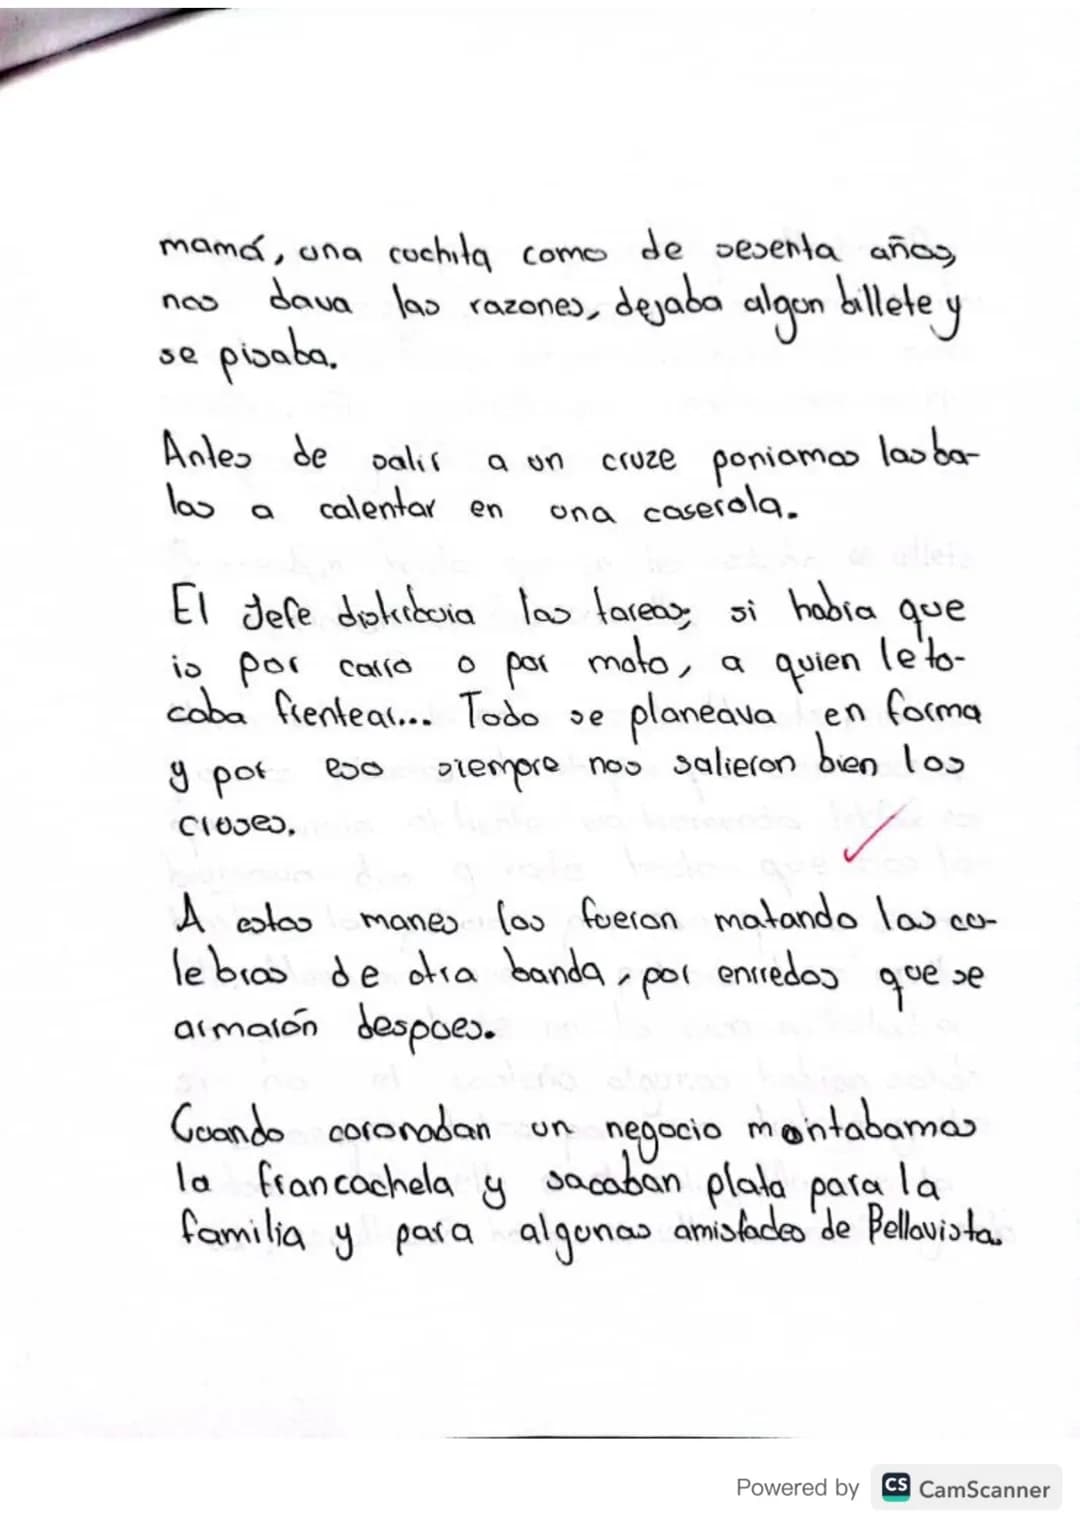 mamá, una cuchita como de sesenta años,
nos dava las razones, dejaba algun billete y
se pisaba.
Antes de salir a un cruze poniamos las ba-
las a calentar en una caserola.
El Jefe distribuia las tareas, si habia que
is por carro o por moto, a quien le to-
caba frentear... Todo se planeava en forma
y por eso siempre nos salieron bien los
cruses.
A estos manes los fueron matando las cu-
lebras de otra banda, por enrredos que se
armarón despues.
Cuando coronadan un negocio montabamos
la francachela y sacaban plata para la
familia y para algunas amistades de Bellavista.
Powered by CS CamScanner